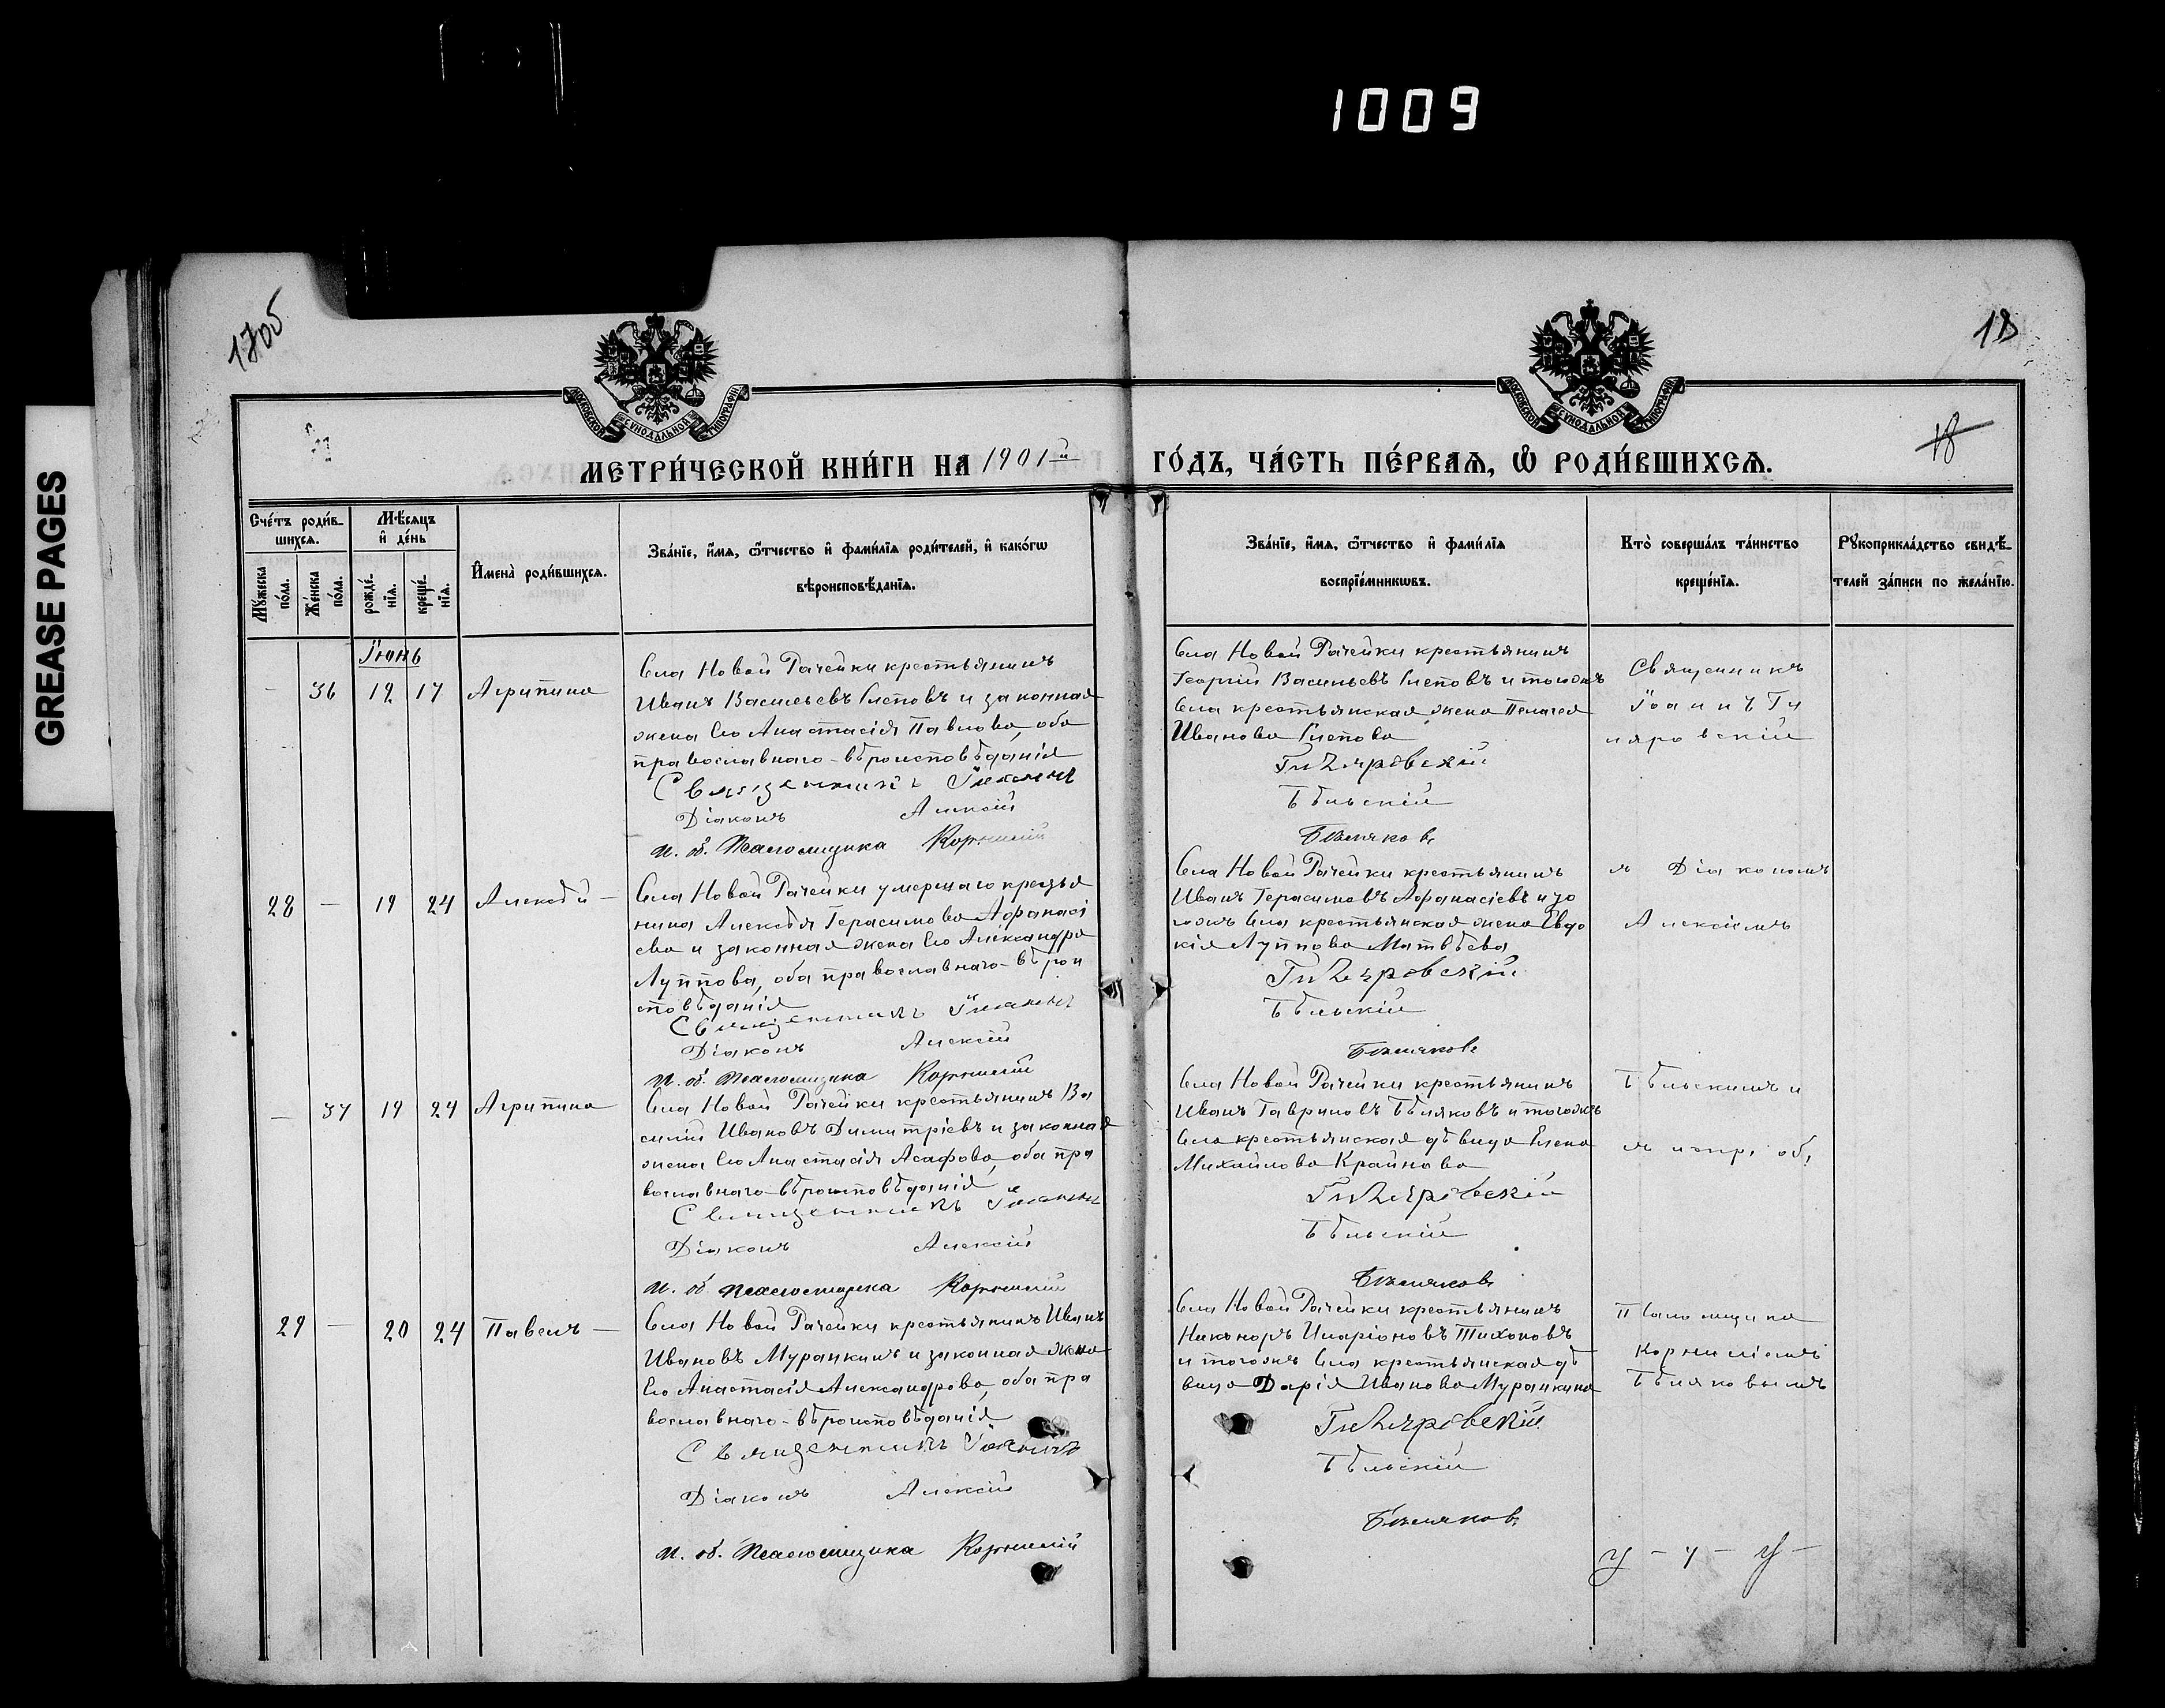 1009
GREASE PAGES
1705
18
18
МОСКОВСКОЙ СѴНОДАЛЬНОЙ ТИПОГРАФІИ
МОСКОВСКОЙ СѴНОДАЛЬНОЙ ТИПОГРАФІИ
МЕТРИ́ЧЕСКОЙ КНИ́ГИ НА 1901й ГО́ДЪ, ЧА́СТЬ ПЕ́РВАѦ, Ѡ҆ РОДИ́ВШИХСѦ.
Сче́тъ роди́в-
шихсѧ.
Мꙋ́жеска
по́ла.
Же́нска
по́ла.
Мѣ́сѧцъ
и҆ де́нь
рожде́-
нїѧ.
креще́-
нїѧ.
И҆мена̀ роди́вшихсѧ.
Зва́нїе, и҆́мѧ, ѻ҆́тчество и҆ фами́лїѧ роди́телей, и҆ како́гѡ
вѣроисповѣ́данїѧ.
Зва́нїе, и҆́мѧ, ѻ҆́тчество и҆ фами́лїѧ
воспрїе́мникѡвъ.
Кто̀ соверша́лъ та́инство
креще́нїѧ.
Рꙋкоприкла́дство свидѣ́-
телей за́писи по жела́нїю.
Іюнь
- 36 12 17 Агрипина
Села Новой Рачейки крестьянинъ
Иванъ Васильевъ Слеповъ и законная
жена его Анастасія Павлова, оба
православнаго-вѣроисповѣданія
Священникъ Іоаннъ
Діаконъ Алексій
И. об. Псаломщика Корнилій
Села Новой Рачейки крестьянинъ
Георгій Васильевъ Слеповъ и тогожъ
Села крестьянская жена Пелагея
Иванова Слепова
Гиляровскій
Бѣльскій
Бѣляковъ
Священникъ
Іоаннъ Ги
ляровскій
28 — 19 24 Алексѣй —
Села Новой Рачейки умершаго крестья
нина Алексѣя Герасимова Афанасі
ева и законная жена его Александра
Луппова, оба православнаго-вѣрои
споведанія
Священникъ Іоаннъ
Діаконъ Алексій
И. об. Псаломщика Корнилій
Села Новой Рачейки крестьянинъ
Иванъ Герасимовъ Афанасіевъ и то
гожъ Села крестьянская жена Евдо
кія Луппова Матвѣева
Гиляровскій
Бѣльскій
Бѣляковъ
съ Діакономъ
Алексіемъ
— 37 19 24 Агрипина
Села Новой Рачейки крестьянинъ Ва
силій Ивановъ Димитріевъ и законная
жена его Анастасія Асафова, оба пра
вославнаго-вѣроисповѣданія
Священникъ Іоаннъ
Діаконъ Алексій
И. об. Псаломщика Корнилій
Села Новой Рачейки крестьянинъ
Иванъ Гавриловъ Бѣляковъ и тогожъ
Села крестьянская дѣвица Елена
Михайлова Крайнова
Гиляровскій
Бѣльскій
Бѣляковъ
Бѣльскимъ и
об.
29 — 20 24 Павелъ —
Села Новой Рачейки крестьянинъ Иванъ
Ивановъ Муранкинъ и законная жена
его Анастасія Александрова, оба пра
вославнаго-вѣроисповѣданія
Священникъ Іоаннъ
Діаконъ Алексій
И. об. Псаломщика Корнилій
Села Новой Рачейки крестьянинъ
Никаноръ Иларіоновъ Тихоновъ
и тогожъ Села крестьянская дѣ
вица Дарія Иванова Муранкина
Гиляровскій
Бѣльскій
Бѣляковъ
Псаломщика
Корниліемъ
Бѣляковымъ